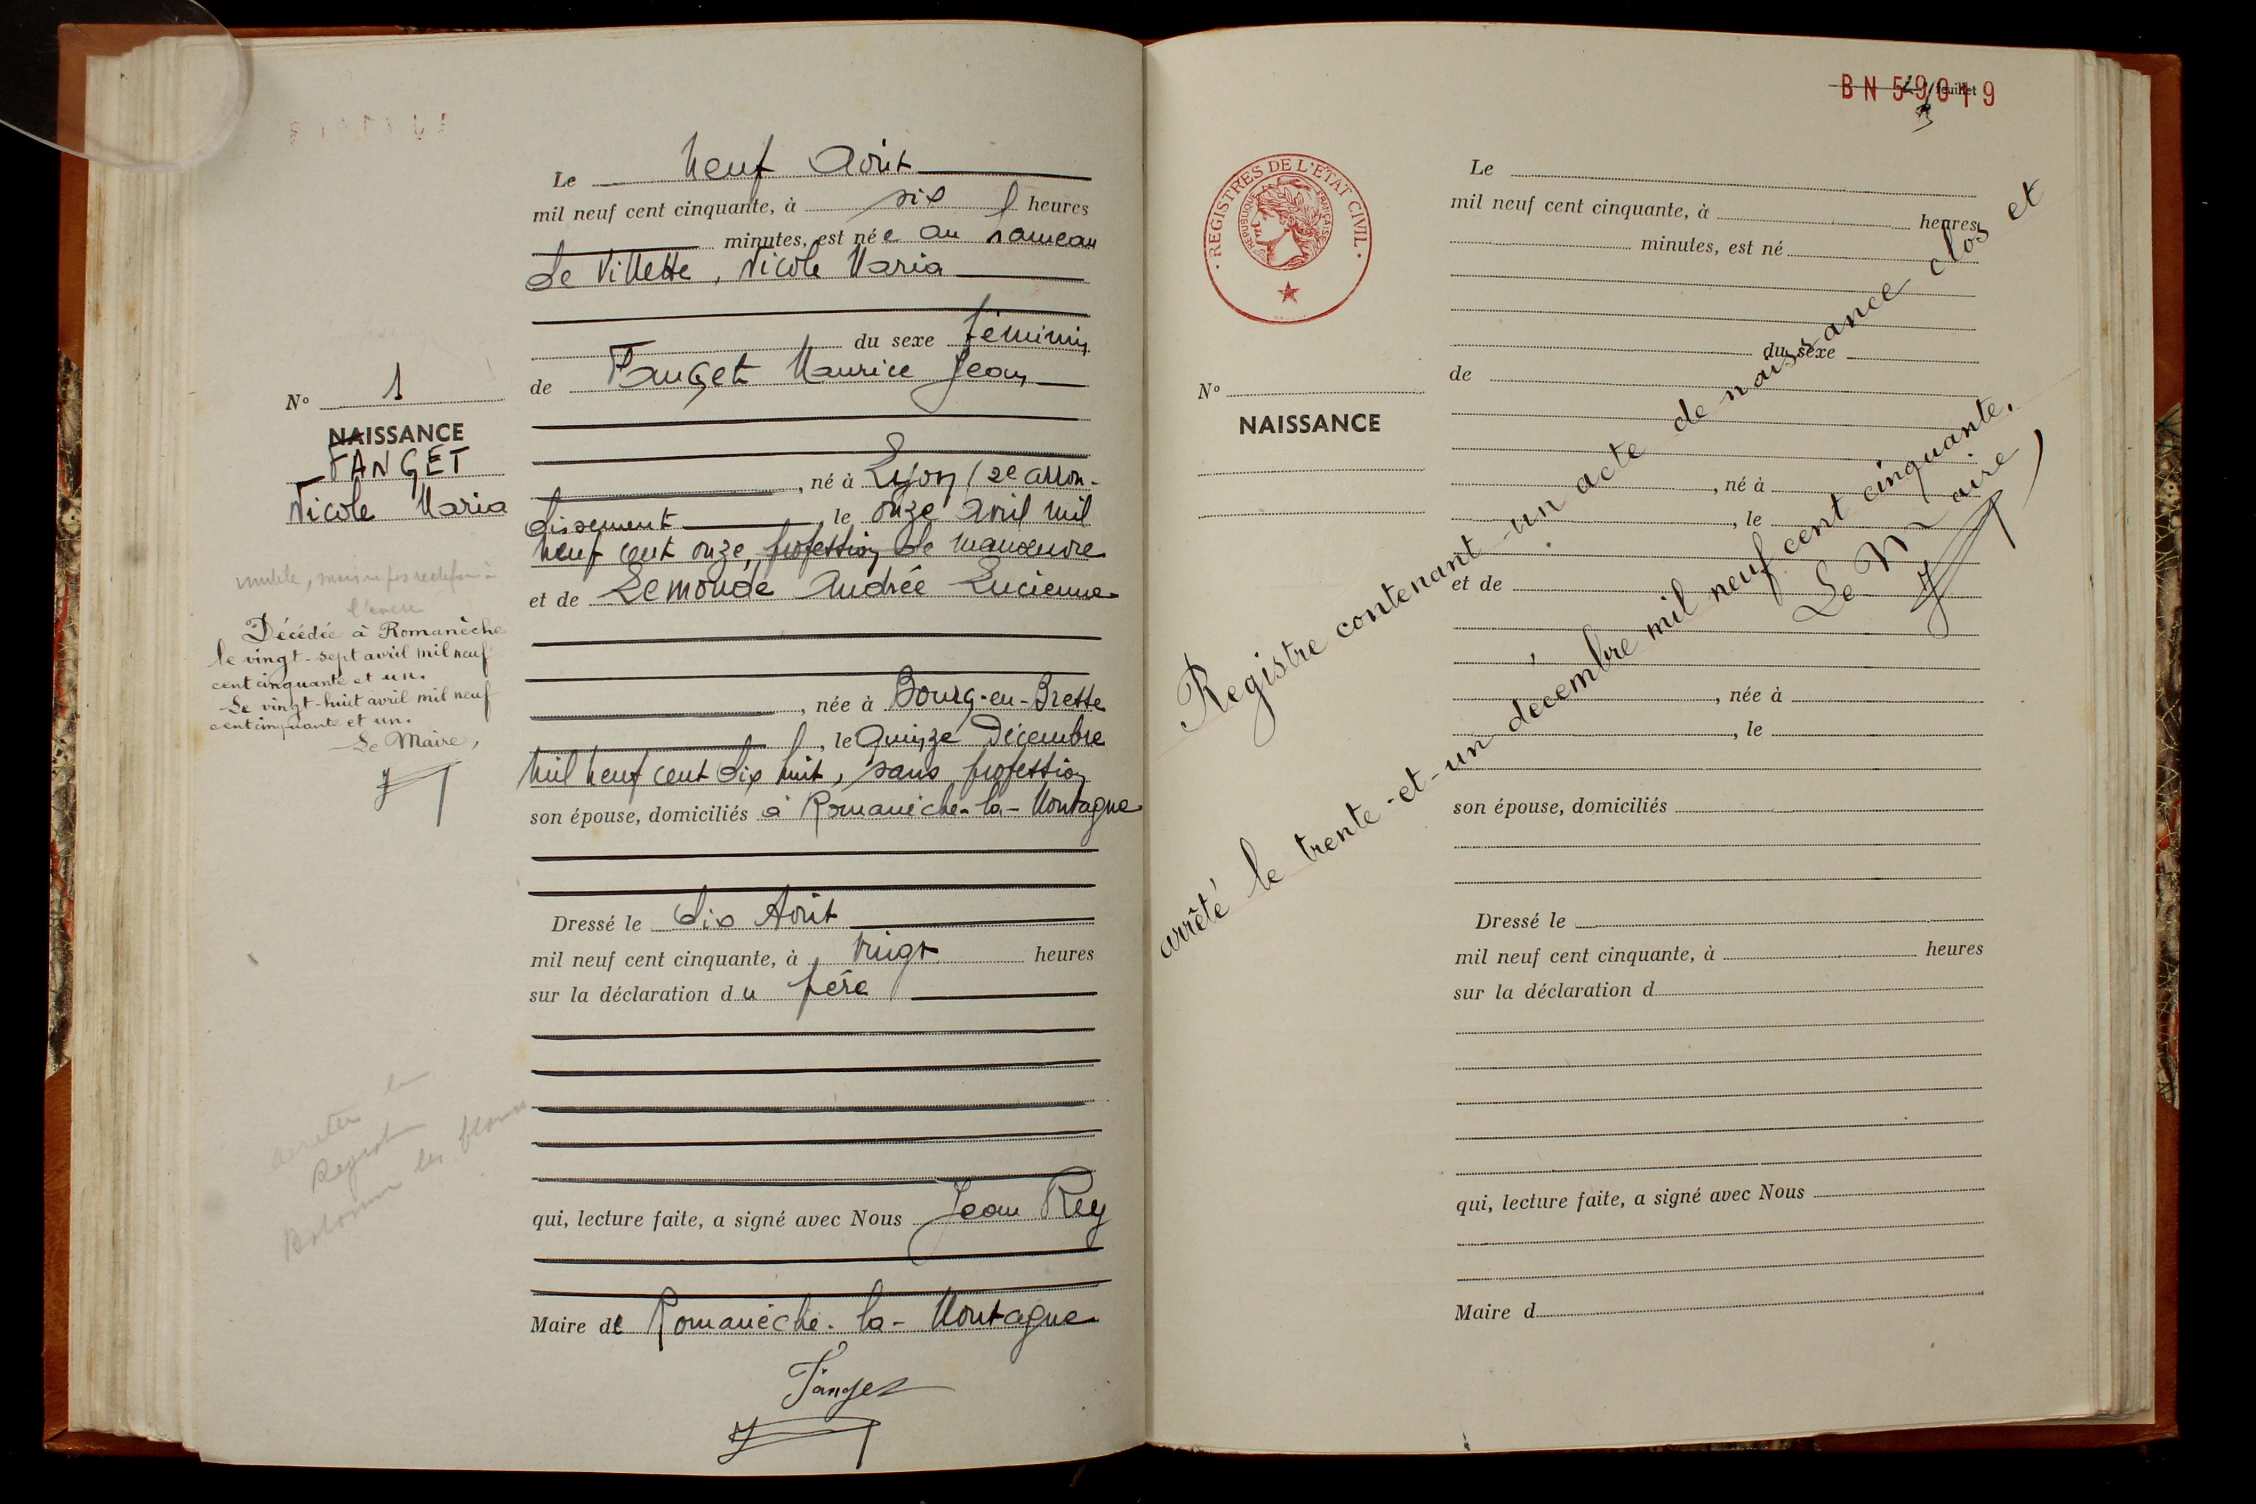 N° 1
NAISSANCE
FANGET
Nicole Maria
Décédée à Romanèche
le vingt-sept avril mil neuf
cent cinquante et un.
Le vingt-huit avril mil neuf
cent cinquante et un.
Le Maire,
Le neuf Août
mil neuf cent cinquante, à six heures
minutes, est née au hameau
de Villette, Nicole Maria
du sexe féminin
de Fanget Maurice Jean
, né à Lyon (2e arron-
dissement , le onze Avril mil
neuf cent onze, profession de manœuvre
et de Lemonde Andrée Lucienne
, née à Bourg-en-Bresse
, le Quinze Décembre
mil neuf cent dix huit, sans profession
son épouse, domiciliés à Romanèche-la-Montagne
Dressé le dix Août
mil neuf cent cinquante, à vingt heures
sur la déclaration du père
qui, lecture faite, a signé avec Nous Jean Rey
Maire de Romanèche-la-Montagne
Fanget
BN 59019
feuillet
REGISTRES DE L'ÉTAT CIVIL
RÉPUBLIQUE FRANÇAISE
N°
NAISSANCE
Le
mil neuf cent cinquante, à heures
minutes, est né
du sexe
de
, né à
, le
et de
, née à
, le
son épouse, domiciliés
Dressé le
mil neuf cent cinquante, à heures
sur la déclaration d
qui, lecture faite, a signé avec Nous
Maire d
Registre contenant un acte de naissance clos et
arrêté le trente-et-un décembre mil neuf cent cinquante.
Le Maire,